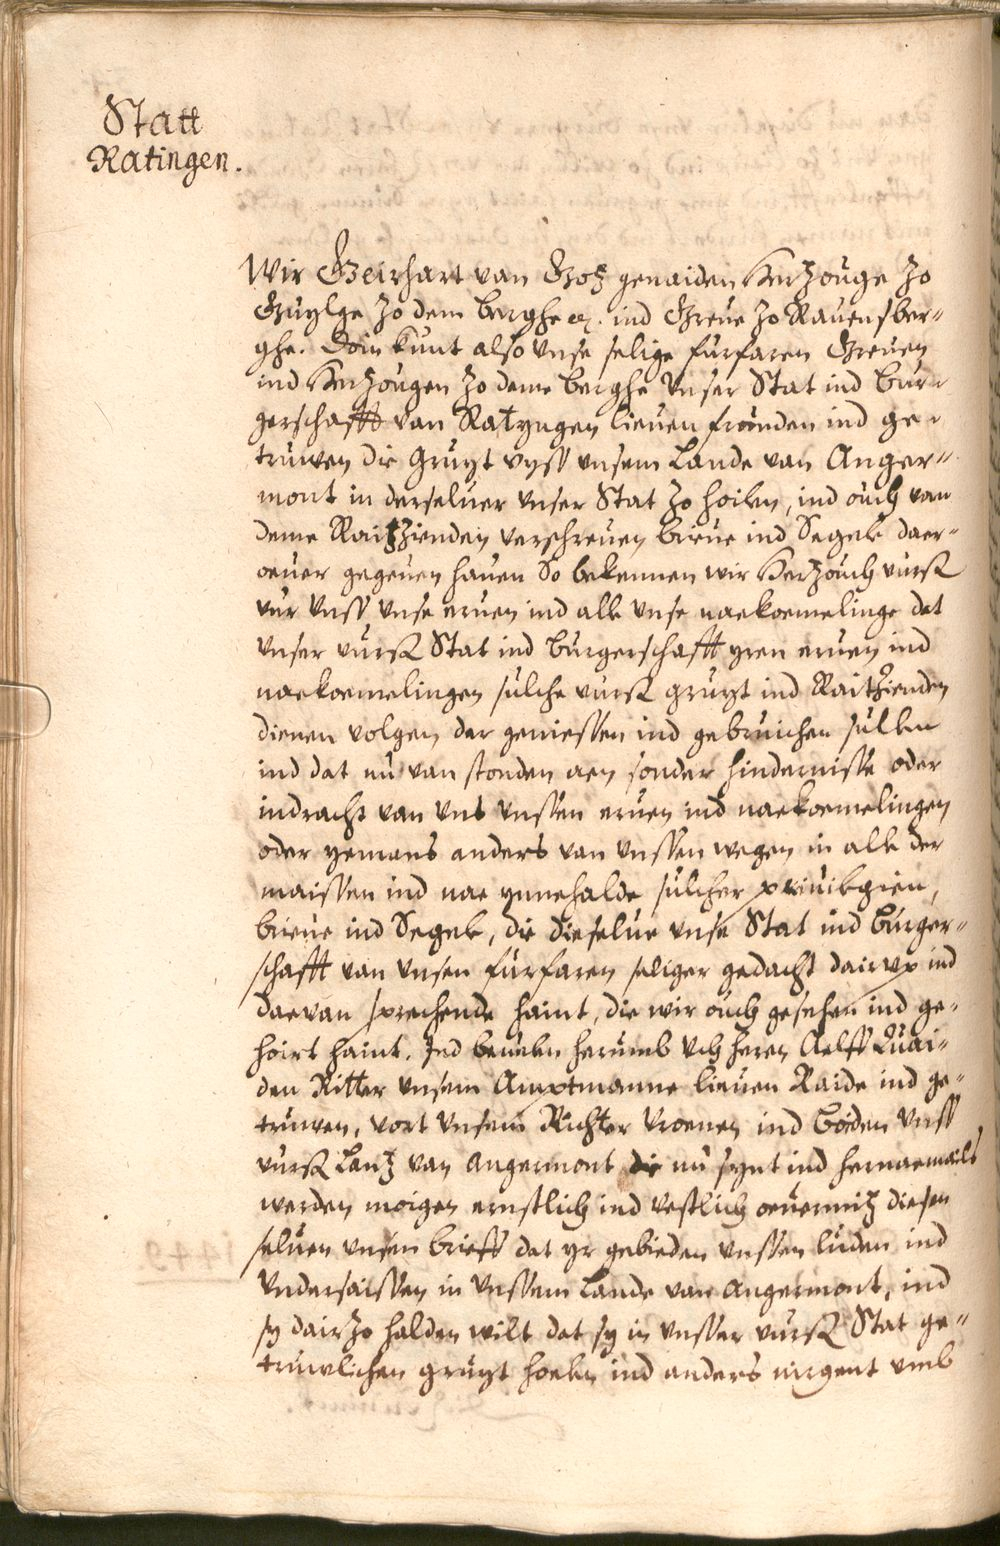 Statt
Ratingen.
Wir Geirhart van Gotz genaiden Hertzouge zo
Guylge zo dem berghe etc. ind Greue zo Rauensber„
ghe. Doin kunt also vnse selige furfaren Greuen
ind Hertzougen zo deme berghe vnser Stat ind bur„
gerschafft van Ratyngen lieuen frunden ind ge„
truwen die Gruyt vyss vnsem Lande van Anger„
mont in derseluer vnser Stat zo hoilen, ind ouch van
deme Raitzienden verschreuen brieue ind Segele daer„
oeuer gegeuen hauen So bekennen wir Hertzouch vurß
vur vnss vnse eruen ind alle vnse naekoemelinge dat
vnser vurß Stat ind Burgerschafft yren eruen ind
naekoemelingen sulche vurß gruyt ind Raitzienden
dienen volgen der geniessen ind gebruichen sullen
ind dat nu van stonden aen sonder hindernisse oder
indracht van vns vnssen eruen ind naekoemelingen
oder yemans anders van vnssen wegen in alle der
maissen ind nae ynnehalde sulcher priuilegien,
brieue ind Segele, die dieselue vnse Stat ind burger„
schafft van vnsen furfaren seliger gedacht dairup ind
daevan sprechende haint, die wir ouch gesehen ind ge„
hoirt haint. Ind beuelen herumb vch heren Aelff Quai„
den Ritter vnsem Amptmanne lieuen Raide ind ge„
truwen, vort vnsem Richter vroenen ind boiden vnss
vurß Lantz van Angermont die nu synt ind hernaemails
werden moigen ernstlich ind vestlich oeuermitz diesen
seluen vnsen brieff dat yr gebieden vnssen luden ind
vndersaissen in vnssem Lande van Angermont, ind
sy dair zo halden wilt dat sy in vnsser vurß Stat ge„
truwlichen gruyt hoelen ind anders nirgent vmb